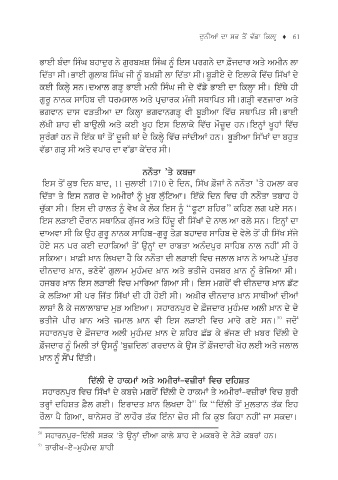 ਦੁਨੀਆਂ ਦਾ ਸਭ ਤੋਂ ਵੱਡਾ ਕਿਲ੍ਹਾ ♦ 61
ਭਾਈ ਬੰਦਾ ਸਿੰਘ ਬਹਾਦੁਰ ਨੇ ਗੁਰਬਖ਼ਸ਼ ਸਿੰਘ ਨੂੰ ਇਸ ਪਰਗਨੇ ਦਾ ਫ਼ੌਜਦਾਰ ਅਤੇ ਅਮੀਨ ਲਾ
ਦਿੱਤਾ ਸੀ। ਭਾਈ ਗੁਲਾਬ ਸਿੰਘ ਜੀ ਨੂੰ ਬਖ਼ਸ਼ੀ ਲਾ ਦਿੱਤਾ ਸੀ। ਬੂੜੀਏ ਦੇ ਇਲਾਕੇ ਵਿੱਚ ਸਿੱਖਾਂ ਦੇ
ਕਈ ਕਿਲ੍ਹੇ ਸਨ। ਦਆਲ ਗੜ੍ਹ ਭਾਈ ਮਨੀ ਸਿੰਘ ਜੀ ਦੇ ਵੱਡੇ ਭਾਈ ਦਾ ਕਿਲ੍ਹਾ ਸੀ। ਇੱਥੇ ਹੀ
ਗੁਰੂ ਨਾਨਕ ਸਾਹਿਬ ਦੀ ਧਰਮਸਾਲ ਅਤੇ ਪ੍ਰਚਾਰਕ ਮੰਜੀ ਸਥਾਪਿਤ ਸੀ। ਗੜ੍ਹੀ ਵਣਜਾਰਾ ਅਤੇ
ਭਗਵਾਨ ਦਾਸ ਵੜਤੀਆ ਦਾ ਕਿਲ੍ਹਾ ਭਗਵਾਨਗੜ੍ਹ ਵੀ ਬੂੜੀਆ ਵਿੱਚ ਸਥਾਪਿਤ ਸੀ। ਭਾਈ
ਲੱਖੀ ਸ਼ਾਹ ਦੀ ਬਾਉਲੀ ਅਤੇ ਕਈ ਖੂਹ ਇਸ ਇਲਾਕੇ ਵਿੱਚ ਮੌਜੂਦ ਹਨ। ਇਨ੍ਹਾਂ ਖੂਹਾਂ ਵਿੱਚ
ਸੁਰੰਗਾਂ ਹਨ ਜੋ ਇੱਕ ਥਾਂ ਤੋਂ ਦੂਜੀ ਥਾਂ ਦੇ ਕਿਲ੍ਹੇ ਵਿੱਚ ਜਾਂਦੀਆਂ ਹਨ। ਬੂੜੀਆ ਸਿੱਖਾਂ ਦਾ ਬਹੁਤ
ਵੱਡਾ ਗੜ੍ਹ ਸੀ ਅਤੇ ਵਪਾਰ ਦਾ ਵੱਡਾ ਕੇਂਦਰ ਸੀ।
ਨਨੌਤਾ 'ਤੇ ਕਬਜ਼ਾ
ਇਸ ਤੋਂ ਕੁਝ ਦਿਨ ਬਾਦ, 11 ਜੁਲਾਈ 1710 ਦੇ ਦਿਨ, ਸਿੱਖ ਫ਼ੌਜਾਂ ਨੇ ਨਨੌਤਾ 'ਤੇ ਹਮਲਾ ਕਰ
ਦਿੱਤਾ ਤੇ ਇਸ ਨਗਰ ਦੇ ਅਮੀਰਾਂ ਨੂੰ ਖ਼ੂਬ ਲੁੱਟਿਆ। ਇੱਕੋ ਦਿਨ ਵਿਚ ਹੀ ਨਨੌਤਾ ਤਬਾਹ ਹੋ
ਚੁੱਕਾ ਸੀ। ਇਸ ਦੀ ਹਾਲਤ ਨੂੰ ਵੇਖ ਕੇ ਲੋਕ ਇਸ ਨੂੰ "ਫੂਟਾ ਸ਼ਹਿਰ" ਕਹਿਣ ਲਗ ਪਏ ਸਨ।
ਇਸ ਲੜਾਈ ਦੌਰਾਨ ਸਥਾਨਿਕ ਗੁੱਜਰ ਅਤੇ ਹਿੰਦੂ ਵੀ ਸਿੱਖਾਂ ਦੇ ਨਾਲ ਆ ਰਲੇ ਸਨ। ਇਨ੍ਹਾਂ ਦਾ
ਦਾਅਵਾ ਸੀ ਕਿ ਉਹ ਗੁਰੂ ਨਾਨਕ ਸਾਹਿਬ-ਗੁਰੂ ਤੇਗ਼ ਬਹਾਦਰ ਸਾਹਿਬ ਦੇ ਵੇਲੇ ਤੋਂ ਹੀ ਸਿੱਖ ਸੱਜੇ
ਹੋਏ ਸਨ ਪਰ ਕਈ ਦਹਾਕਿਆਂ ਤੋਂ ਉਨ੍ਹਾਂ ਦਾ ਰਾਬਤਾ ਅਨੰਦਪੁਰ ਸਾਹਿਬ ਨਾਲ ਨਹੀਂ ਸੀ ਹੋ
ਸਕਿਆ। ਖ਼ਾਫ਼ੀ ਖ਼ਾਨ ਲਿਖਦਾ ਹੈ ਕਿ ਨਨੌਤਾ ਦੀ ਲੜਾਈ ਵਿਚ ਜਲਾਲ ਖ਼ਾਨ ਨੇ ਆਪਣੇ ਪੁੱਤਰ
ਦੀਨਦਾਰ ਖ਼ਾਨ, ਭਣੇਵੇਂ ਗ਼ੁਲਾਮ ਮੁਹੰਮਦ ਖ਼ਾਨ ਅਤੇ ਭਤੀਜੇ ਹਜਬਰ ਖ਼ਾਨ ਨੂੰ ਭੇਜਿਆ ਸੀ।
ਹਜਬਰ ਖ਼ਾਨ ਇਸ ਲੜਾਈ ਵਿਚ ਮਾਰਿਆ ਗਿਆ ਸੀ। ਇਸ ਮਗਰੋਂ ਵੀ ਦੀਨਦਾਰ ਖ਼ਾਨ ਡੱਟ
ਕੇ ਲੜਿਆ ਸੀ ਪਰ ਜਿੱਤ ਸਿੱਖਾਂ ਦੀ ਹੀ ਹੋਈ ਸੀ। ਅਖ਼ੀਰ ਦੀਨਦਾਰ ਖ਼ਾਨ ਸਾਥੀਆਂ ਦੀਆਂ
ਲਾਸ਼ਾਂ ਲੈ ਕੇ ਜਲਾਲਾਬਾਦ ਮੁੜ ਅਇਆ। ਸਹਾਰਨਪੁਰ ਦੇ ਫ਼ੌਜਦਾਰ ਮੁਹੰਮਦ ਅਲੀ ਖ਼ਾਨ ਦੇ ਦੋ
ਭਤੀਜੇ ਪੀਰ ਖ਼ਾਨ ਅਤੇ ਜਮਾਲ ਖ਼ਾਨ ਵੀ ਇਸ ਲੜਾਈ ਵਿਚ ਮਾਰੇ ਗਏ ਸਨ। ਜਦੋਂ
ਸਹਾਰਨਪੁਰ ਦੇ ਫ਼ੌਜਦਾਰ ਅਲੀ ਮੁਹੰਮਦ ਖ਼ਾਨ ਦੇ ਸ਼ਹਿਰ ਛੱਡ ਕੇ ਭੱਜਣ ਦੀ ਖ਼ਬਰ ਦਿੱਲੀ ਦੇ
ਫ਼ੌਜਦਾਰ ਨੂੰ ਮਿਲੀ ਤਾਂ ਉਸਨੂੰ 'ਬੁਜ਼ਦਿਲ' ਗਰਦਾਨ ਕੇ ਉਸ ਤੋਂ ਫ਼ੌਜਦਾਰੀ ਖੋਹ ਲਈ ਅਤੇ ਜਲਾਲ
ਖ਼ਾਨ ਨੂੰ ਸੌਂਪ ਦਿੱਤੀ।
ਦਿੱਲੀ ਦੇ ਹਾਕਮਾਂ ਅਤੇ ਅਮੀਰਾਂ-ਵਜ਼ੀਰਾਂ ਵਿਚ ਦਹਿਸ਼ਤ
ਸਹਾਰਨਪੁਰ ਵਿਚ ਸਿੱਖਾਂ ਦੇ ਕਬਜ਼ੇ ਮਗਰੋਂ ਦਿੱਲੀ ਦੇ ਹਾਕਮਾਂ ਤੇ ਅਮੀਰਾਂ-ਵਜ਼ੀਰਾਂ ਵਿਚ ਬੁਰੀ
ਤਰ੍ਹਾਂ ਦਹਿਸ਼ਤ ਫੈਲ ਗਈ। ਇਰਾਦਤ ਖ਼ਾਨ ਲਿਖਦਾ ਹੈ ਕਿ "ਦਿੱਲੀ ਤੋਂ ਮੁਲਤਾਨ ਤੱਕ ਇਹ
ਰੌਲਾ ਪੈ ਗਿਆ, ਥਾਨੇਸਰ ਤੋਂ ਲਾਹੌਰ ਤੱਕ ਇੰਨਾ ਸ਼ੋਰ ਸੀ ਕਿ ਕੁਝ ਕਿਹਾ ਨਹੀਂ ਜਾ ਸਕਦਾ।
ਸਹਾਰਨਪੁਰ-ਦਿੱਲੀ ਸੜਕ 'ਤੇ ਉਨ੍ਹਾਂ ਦੀਆਂ ਕਾਲੇ ਸ਼ਾਹ ਦੇ ਮਕਬਰੇ ਦੇ ਨੇੜੇ ਕਬਰਾਂ ਹਨ।
ਤਾਰੀਖ਼-ਏ-ਮੁਹੰਮਦ ਸ਼ਾਹੀ